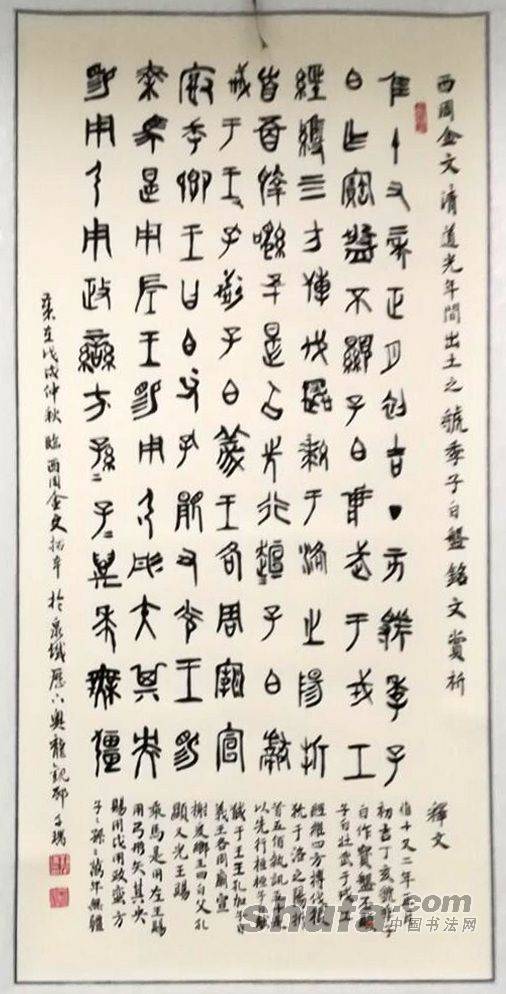 西周金文清道光年間出土之虢季子白盤銘文賞析
隹十又二年正月初吉丁亥虢季子
白乍寶盤不顯子白壯武于戎工
經維四方搏伐玁狁于洛之陽折
首五百執訊五十是以先行桓子白獻
戒于王王孔加子白義王各周廟宣
廄爰鄉王曰白父孔顯又光王賜
乘馬是用左王賜用弓彤矢其央
賜用戉用政蠻方孫子萬年無疆
歲在戊戌仲秋臨西周金文拓本於泉城歷下奧龍觀邸子瑞
釋文
惟十又二年正月
初吉丁亥虢季子
白作寶盤丕顯
子白壯武于戎工
經維四方搏伐玁
狁于洛之陽折
首五佰執訊五十
以先行桓桓子白獻
馘于王王孔加子白
義王各周廟宣
榭爰鄉王曰白父孔
顯又光王賜
乘馬是用左王賜
用弓彤矢其央
賜用戉用政蠻方
子子孫孫萬年無疆
中国书法网